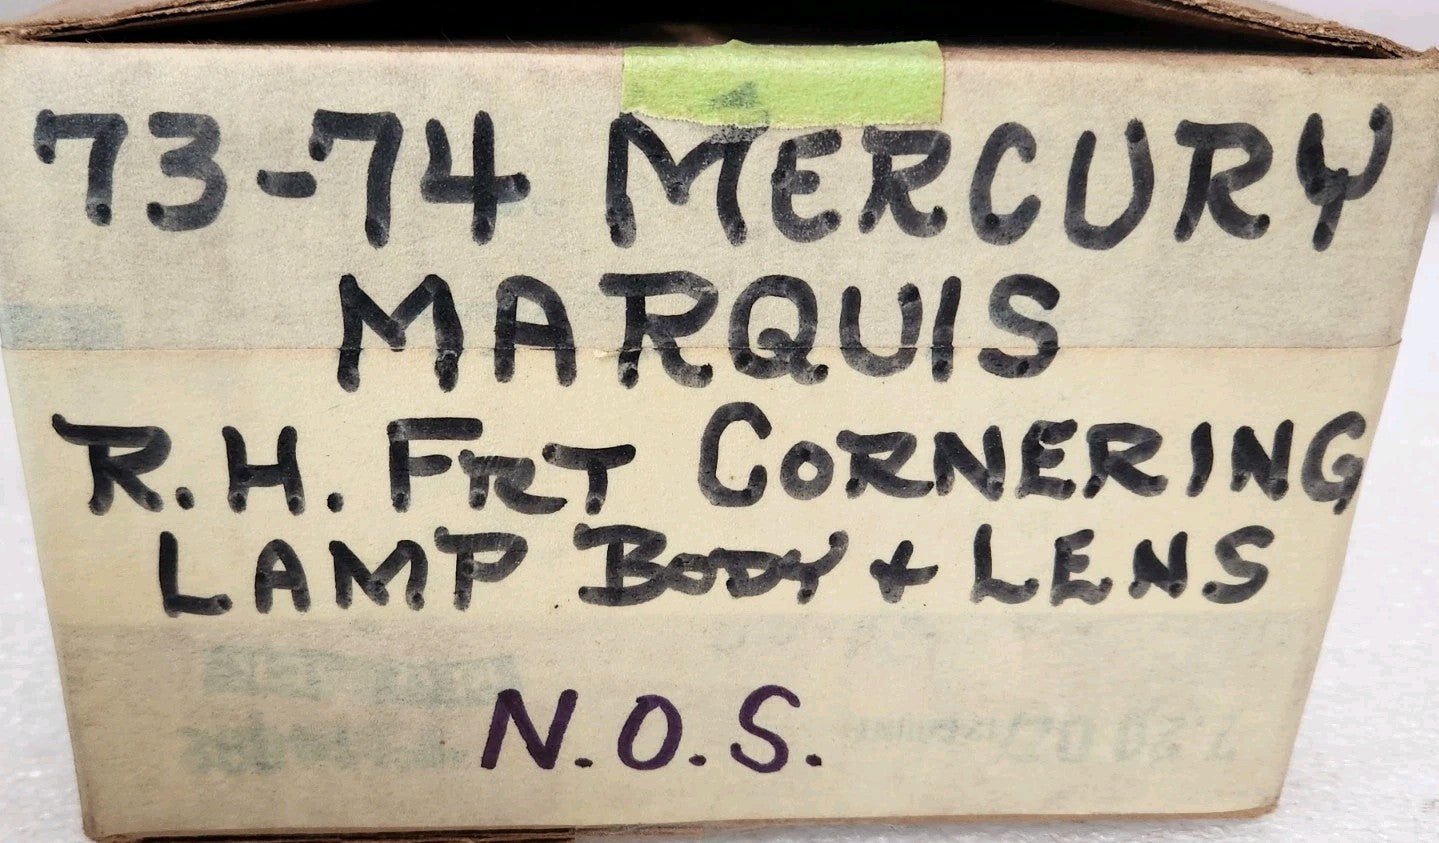 73-74 MERCURY
MARQUIS
R.H. FRT CORNERING
LAMP BODY + LENS
N.O.S.